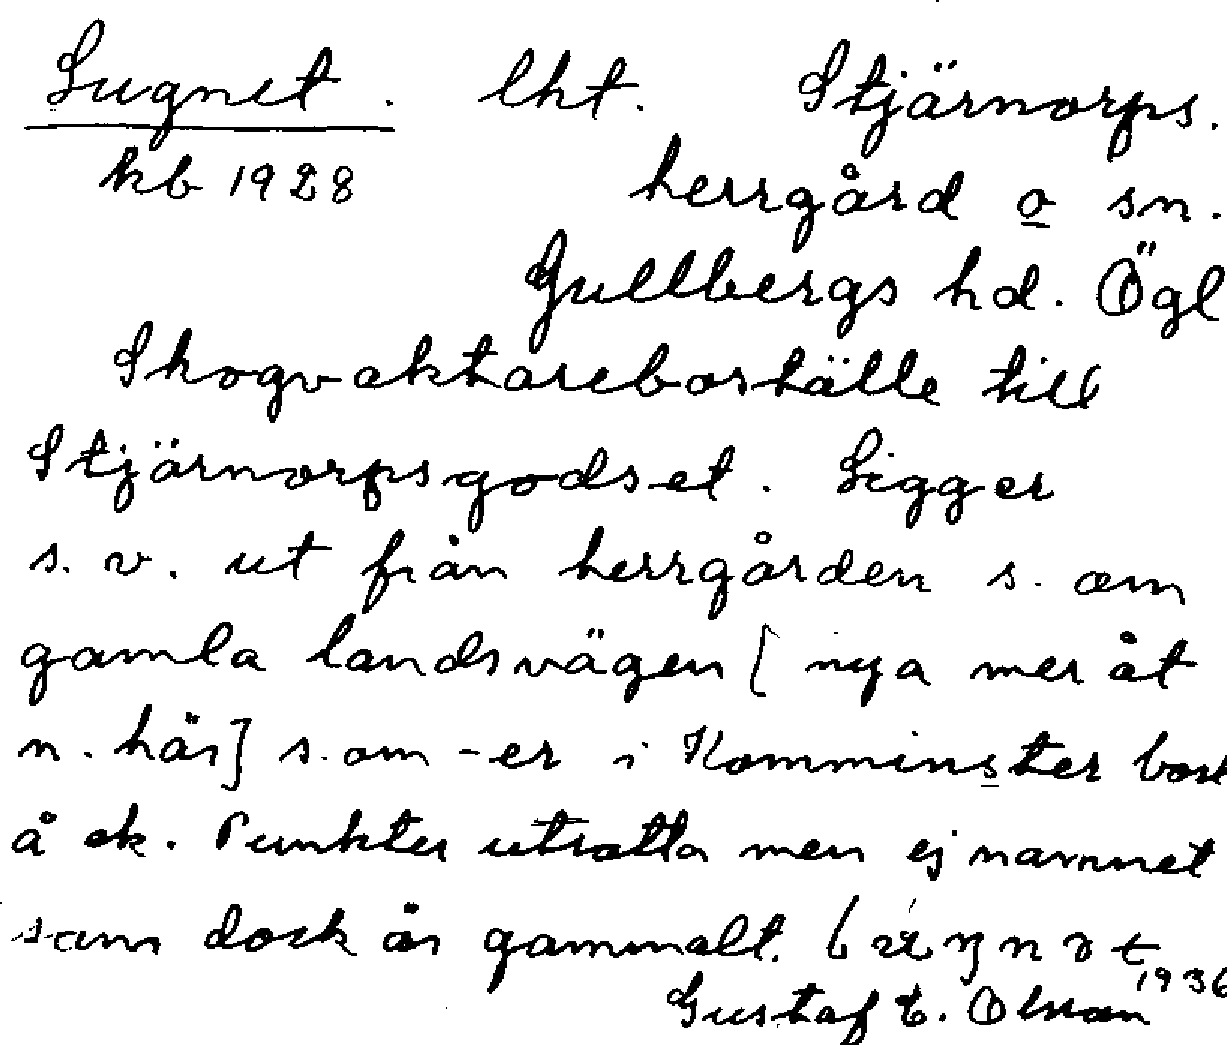 Lugnet. lht. Stjärnorps.
kb 1928 herrgård o sn.
Gullbergs hd. Ögl
Skogvaktareboställe till
Stjärnorpsgodset. Ligger
s. v. ut från herrgården s. om
gamla landsvägen [nya mer åt
n. här] s. om -er i Komminster bost
å ek. Punkter utsatta men ej namnet
som dock är gammalt.
1936
Gustaf E. Olsson